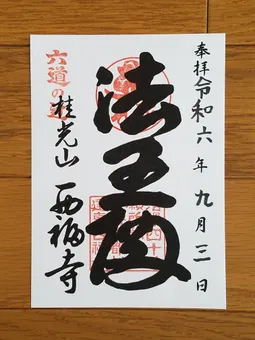 奉拝令和六年九月三日
法王
六道の
桂光山 西福寺